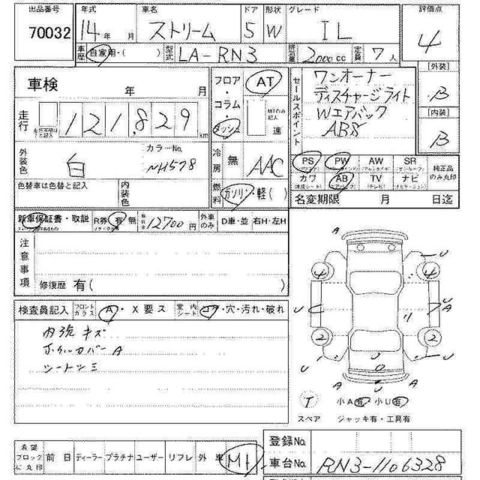 出品番号 年式 車名 ドア 形状 グレード 評価点
70032 14年 ストリーム 5 W IL 4
車歴 自家用・( ) 型式 LA-RN3 排気量 2000cc 定員 7人
車検 年 月 フロア・コラム・ダッシュ AT 速 セールスポイント ワンオーナー 【外装】
ディスチャージライト B
走行 121,829 km Wエアバッグ 【内装】
ABS B
外装色 白 カラーNo. NH578 冷房 無 AAC PS PW AW SR 純正品のみ点印
色替車は色替と記入 内装色 燃料 ガソリン・軽( ) カワ AB TV ナビ
名変期限 月 日迄
新車保証書・取説 R券 有・無 12700円 外車のみ D車・並 右H・左H
注意事項
修復歴 有( )
検査員記入 フロントガラス A・X要ス 室内シート コゲ・穴・汚れ・破れ
内張キズ
ホイルカバーA
シートシミ
U A U A
4 4 U
U U
2 2
U J U
A A
T 小A有 小U有
スペア ジャッキ有・工具有
登録No.
希望ブロックに丸印 前日 ディーラー プラチナ ユーザー リフレ 外車 MI 車台No. RN3-1106328